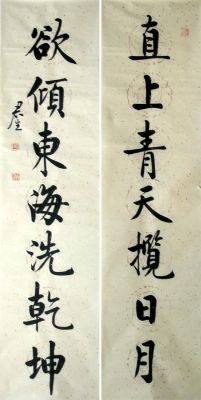 直上青天攬日月
欲傾東海洗乾坤